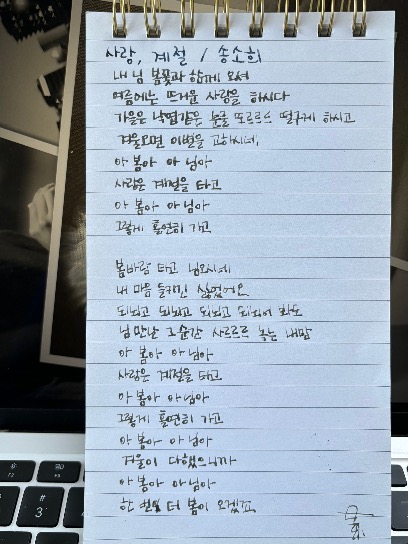 사랑, 계절 / 송소희
내 님 봄꽃과 함께 오셔
여름에는 뜨거운 사랑을 하시다
가을은 낙엽같은 눈물 또르르 떨구게 하시고
겨울오면 이별을 고하시네
아 봄아 아 님아
사랑은 계절을 타고
아 봄아 아 님아
그렇게 홀연히 가고
봄바람 타고 님오시네
내 마음 들키긴 싫었어요
되뇌고 되뇌고 되뇌고 되뇌어 봐도
님 만난 그 순간 사르르 녹는 내맘
아 봄아 아 님아
사랑은 계절을 타고
아 봄아 아 님아
그렇게 홀연히 가고
아 봄아 아 님아
겨울이 다했으니까
아 봄아 아 님아
한 번 더 봄이 오겠죠
#
3